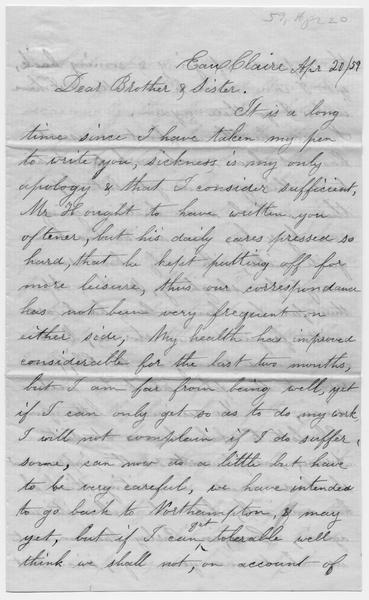 59, Apr 20
Eau Claire Apr 20/59
Dear Brother & Sister.
It is a long
time since I have taken my pen
to write you, sickness is my only
apology & that I consider sufficient,
Mr H. ought to have written you
oftener, but his daily cares pressed so
hard, that he kept putting off for
more leisure, thus our correspondance
has not been very frequent on
either side, My health has improved
considerable for the last two months,
but I am far from being well, yet
if I can only get so as to do my work
I will not complain if I do suffer
some, can now do a little but have
to be very careful, we have intended
to go back to Northampton, & may
yet, but if I can get tolerable well
think we shall not, on account of